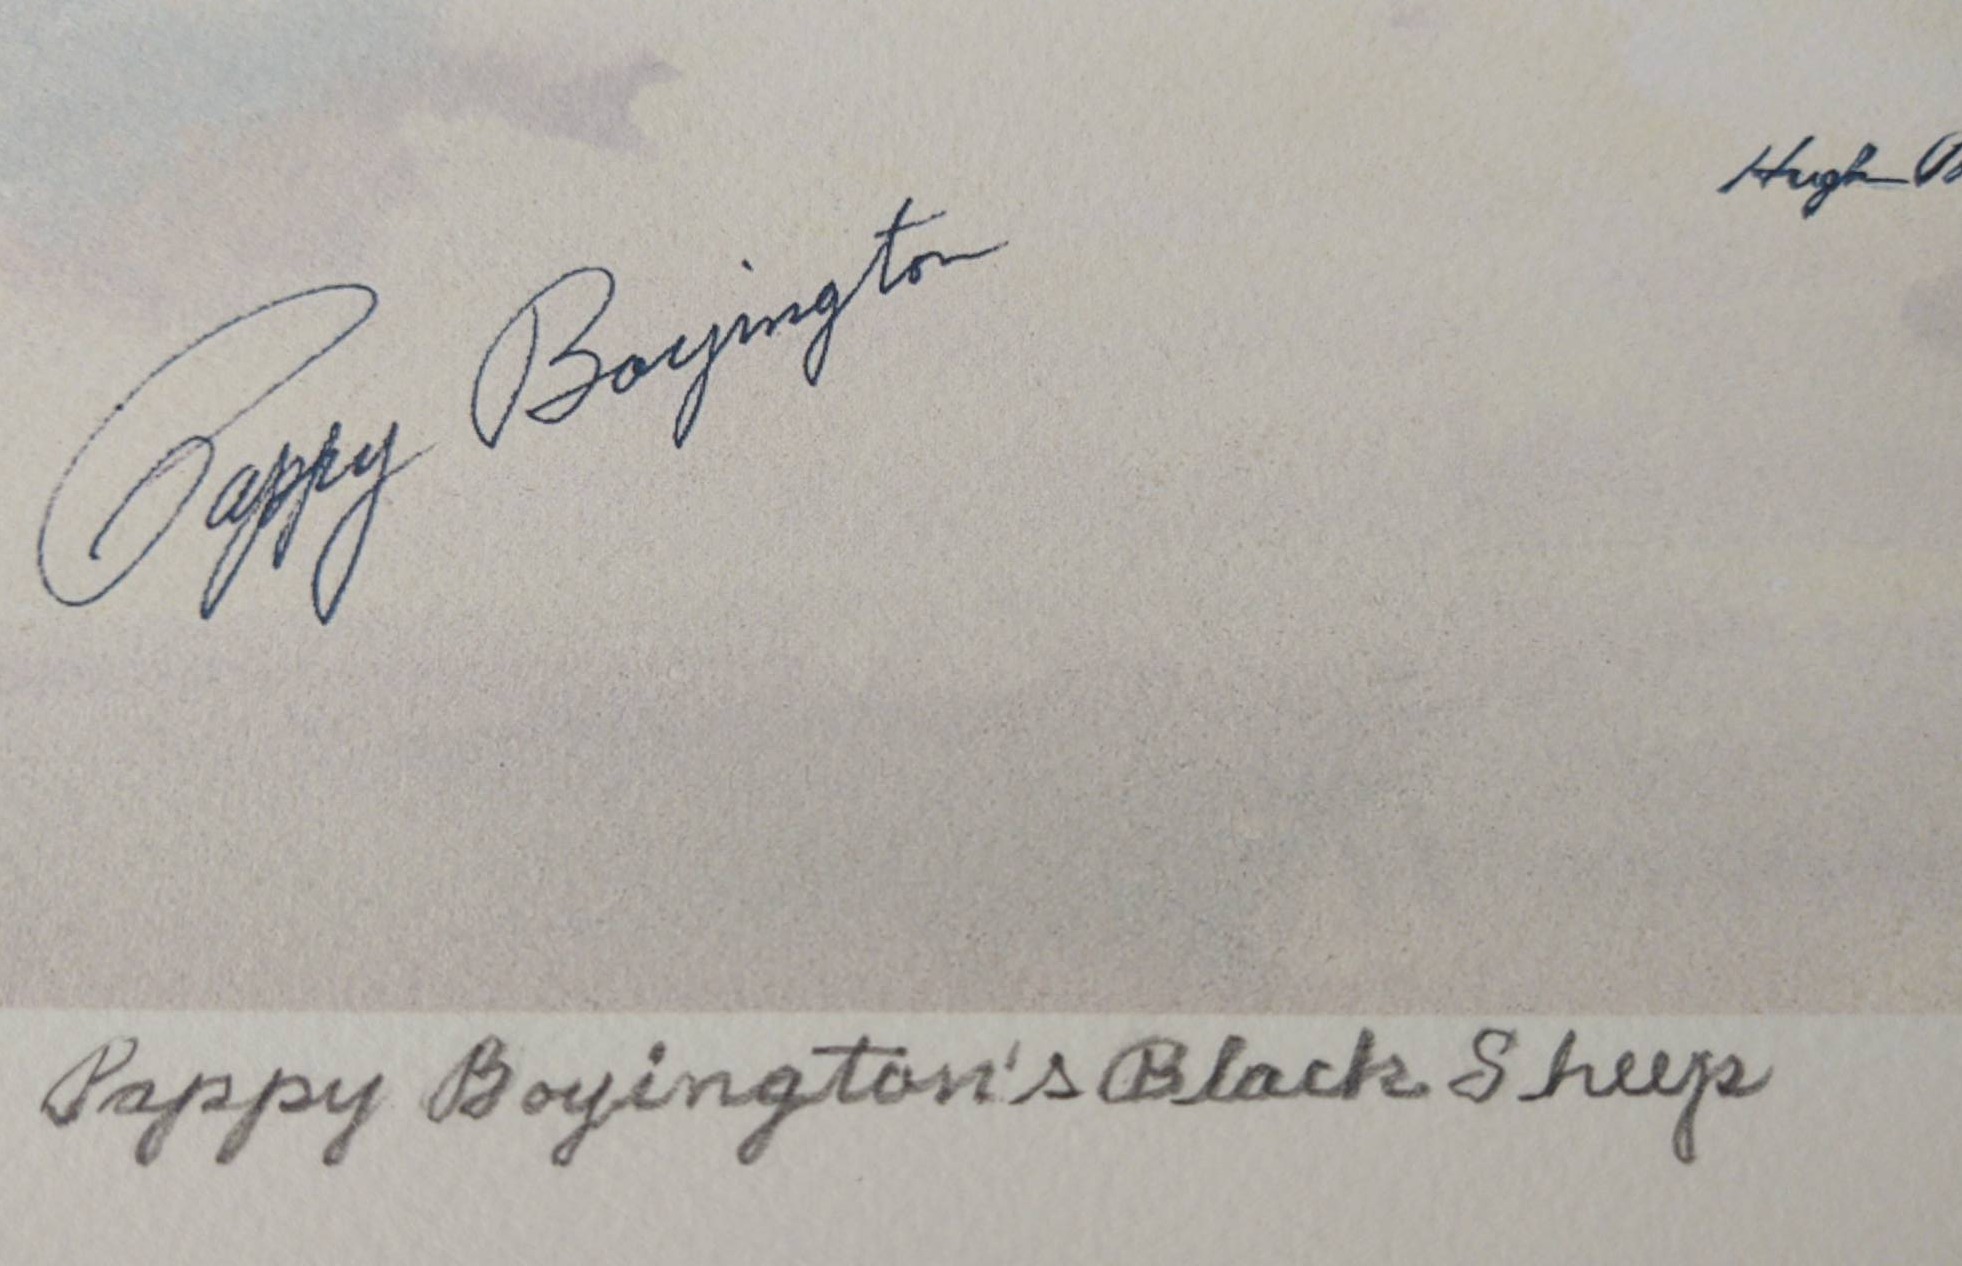 Hugh
Pappy Boyington
Pappy Boyington's Black Sheep